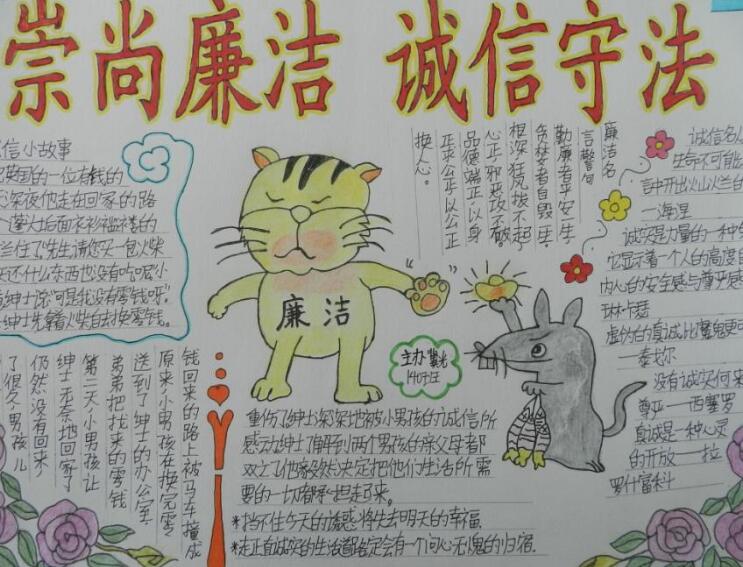 崇尚廉洁 诚信守法
信小故事
英国的一位有钱的
深夜他走在回家的路
蓬头后面衣衫褴褛的
兰住了。先生请您买一包火柴
天还什么东西也没有吃呢"小
绅士说"可是我没有零钱呀"
绅士先籍火柴自去换零钱。
了很久男孩儿
仍然没有回来,
绅士无奈地回家了
第二天,小男孩让
弟弟把找来的零钱
送到了绅士的办公室.
原来,小男孩在换完零
钱回来的路上被马车撞成
重伤了绅士深深地被小男孩的诚信所
感动绅士了解到两个男孩的亲父母都
双亡了他毅然决定把他们生活所需
要的一切都承担起来了。
*挡不住今天的诱惑,将失去明天的幸福.
*走正直诚实的生活道路定会有一个问心无愧的归宿.
廉洁名
言警句
勤廉者平安一生
贪婪者自毁一生
根深狂风拔不起
心正邪来攻不破
品德端正以身
正求公正以公正
换人心。
廉洁
主办
1407班
诚信名人
生命不可能
言中开出灿烂的
—海涅
诚实是力量的一种
它显示着一个人的高度自
内心的安全感与尊严感
琳卡瑟
虚伪的真诚比魔鬼更可
泰戈尔
没有诚实何来
尊严—西塞罗
真诚是一种心灵
的开放—拉
罗什富科